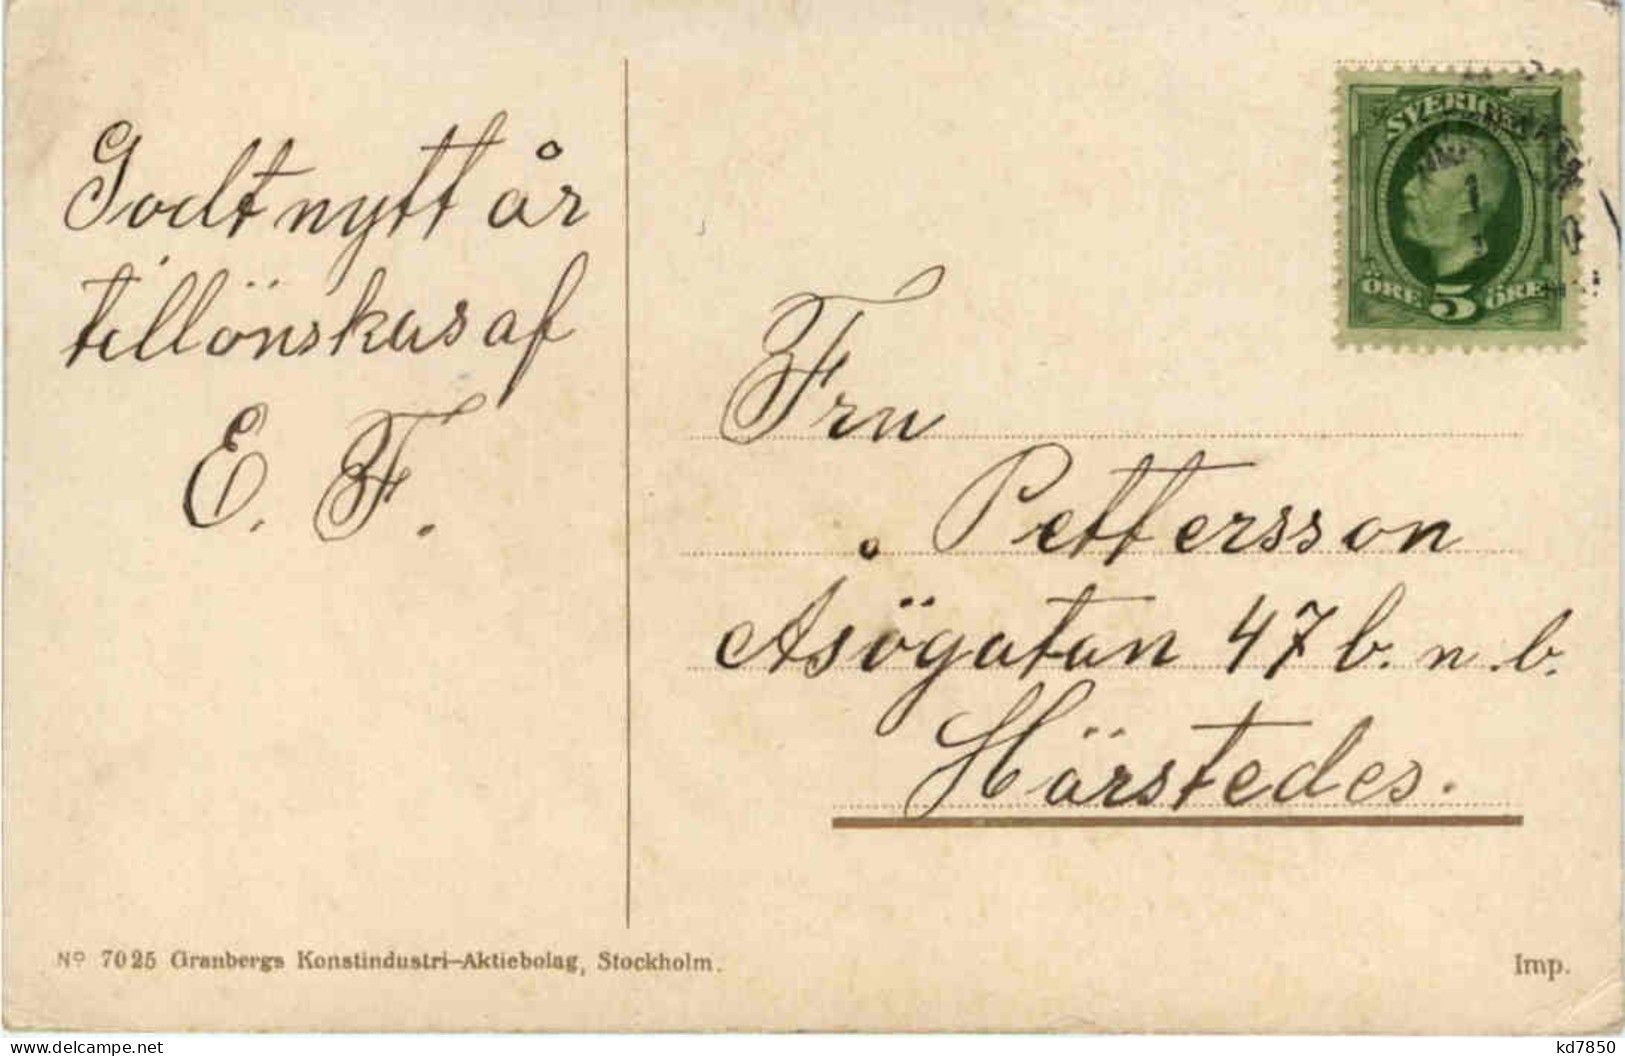 Godt nytt år
tillönskas af
E. F.
SVERIGE
ÖRE 5 ÖRE
Fru
Pettersson
Åsögatan 47 b. n. b.
Härstedes.
Nº 7025 Granbergs Konstindustri-Aktiebolag, Stockholm.
Imp.
delcampe.net
kd7850